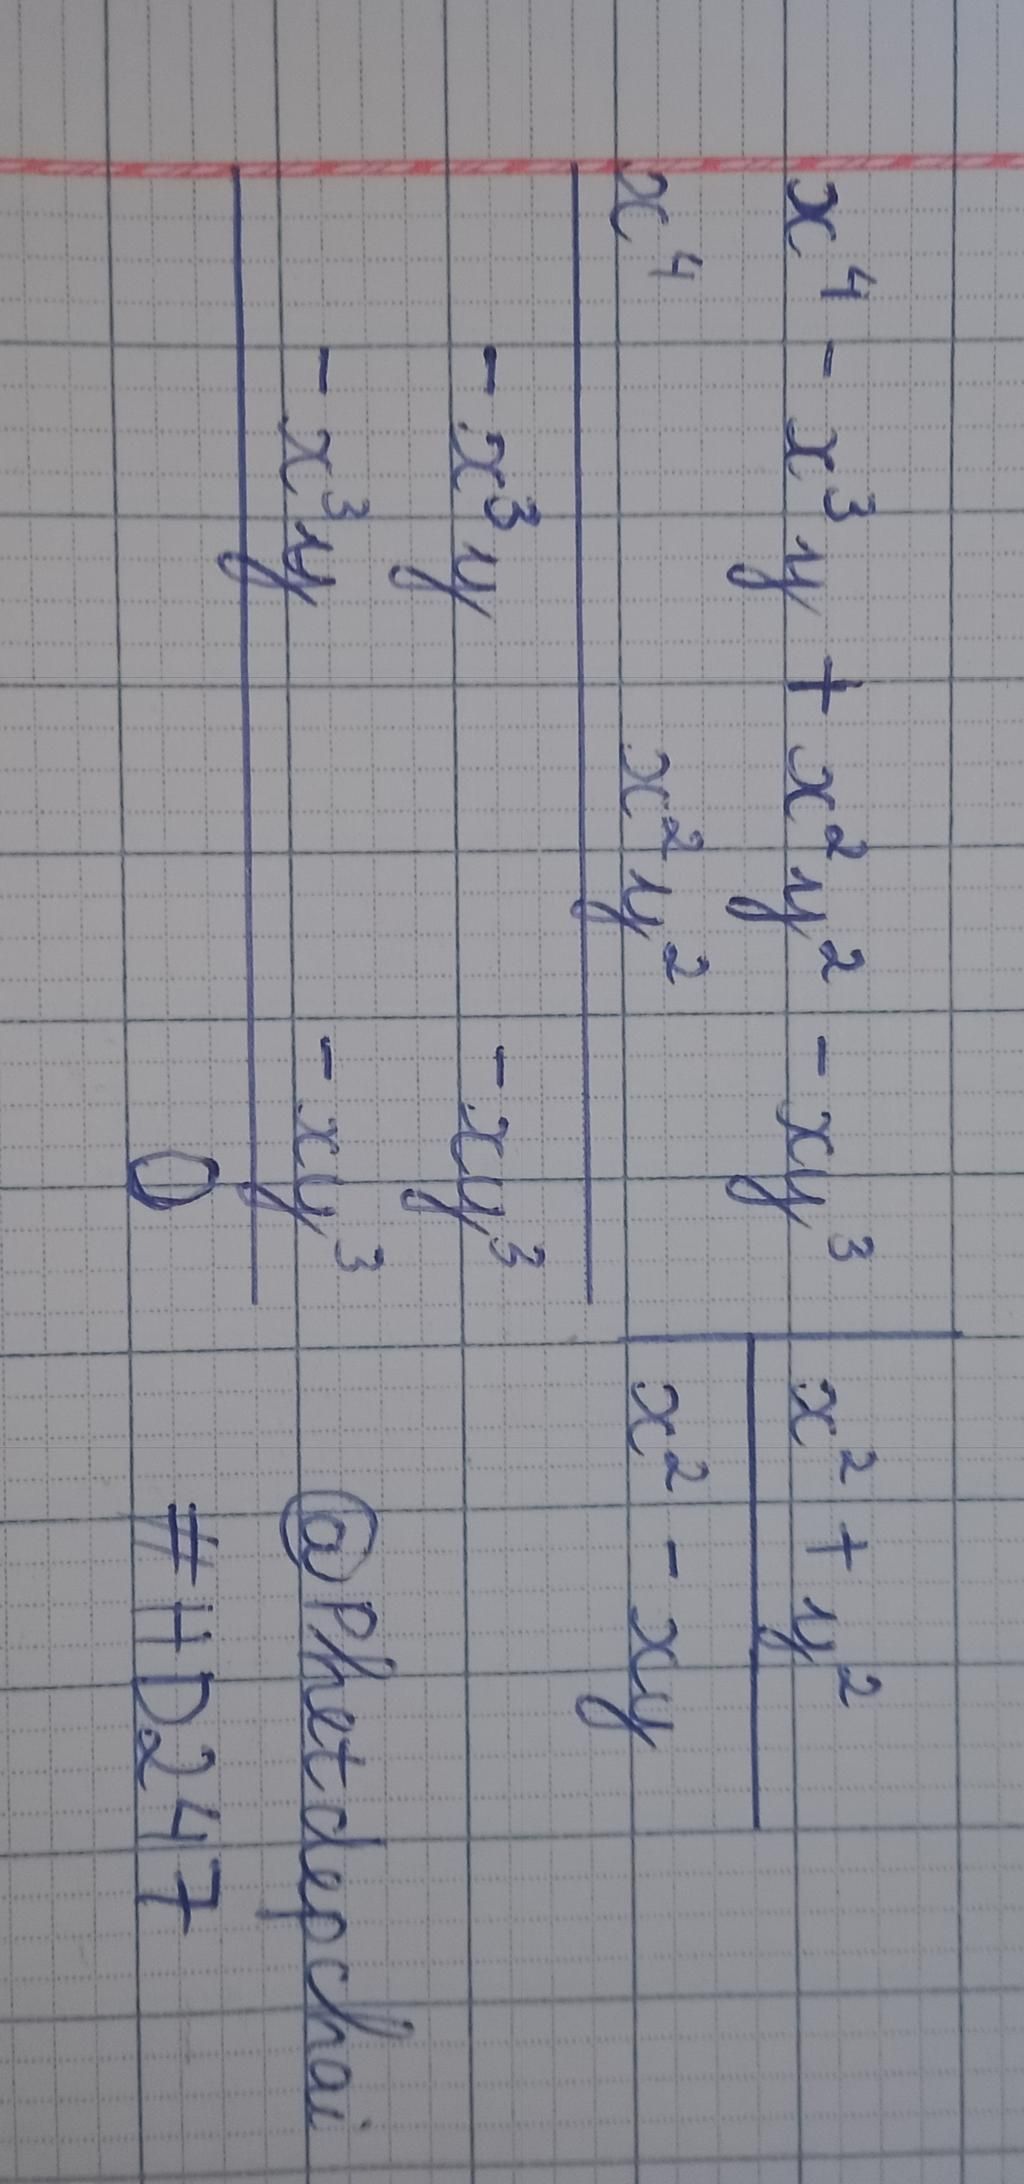 x⁴ - x³y + x²y² - xy³ | x² + y²
x⁴ x²y² | x² - xy
- x³y - xy³
- x³y - xy³
0
@Phetdepchai
#HD247